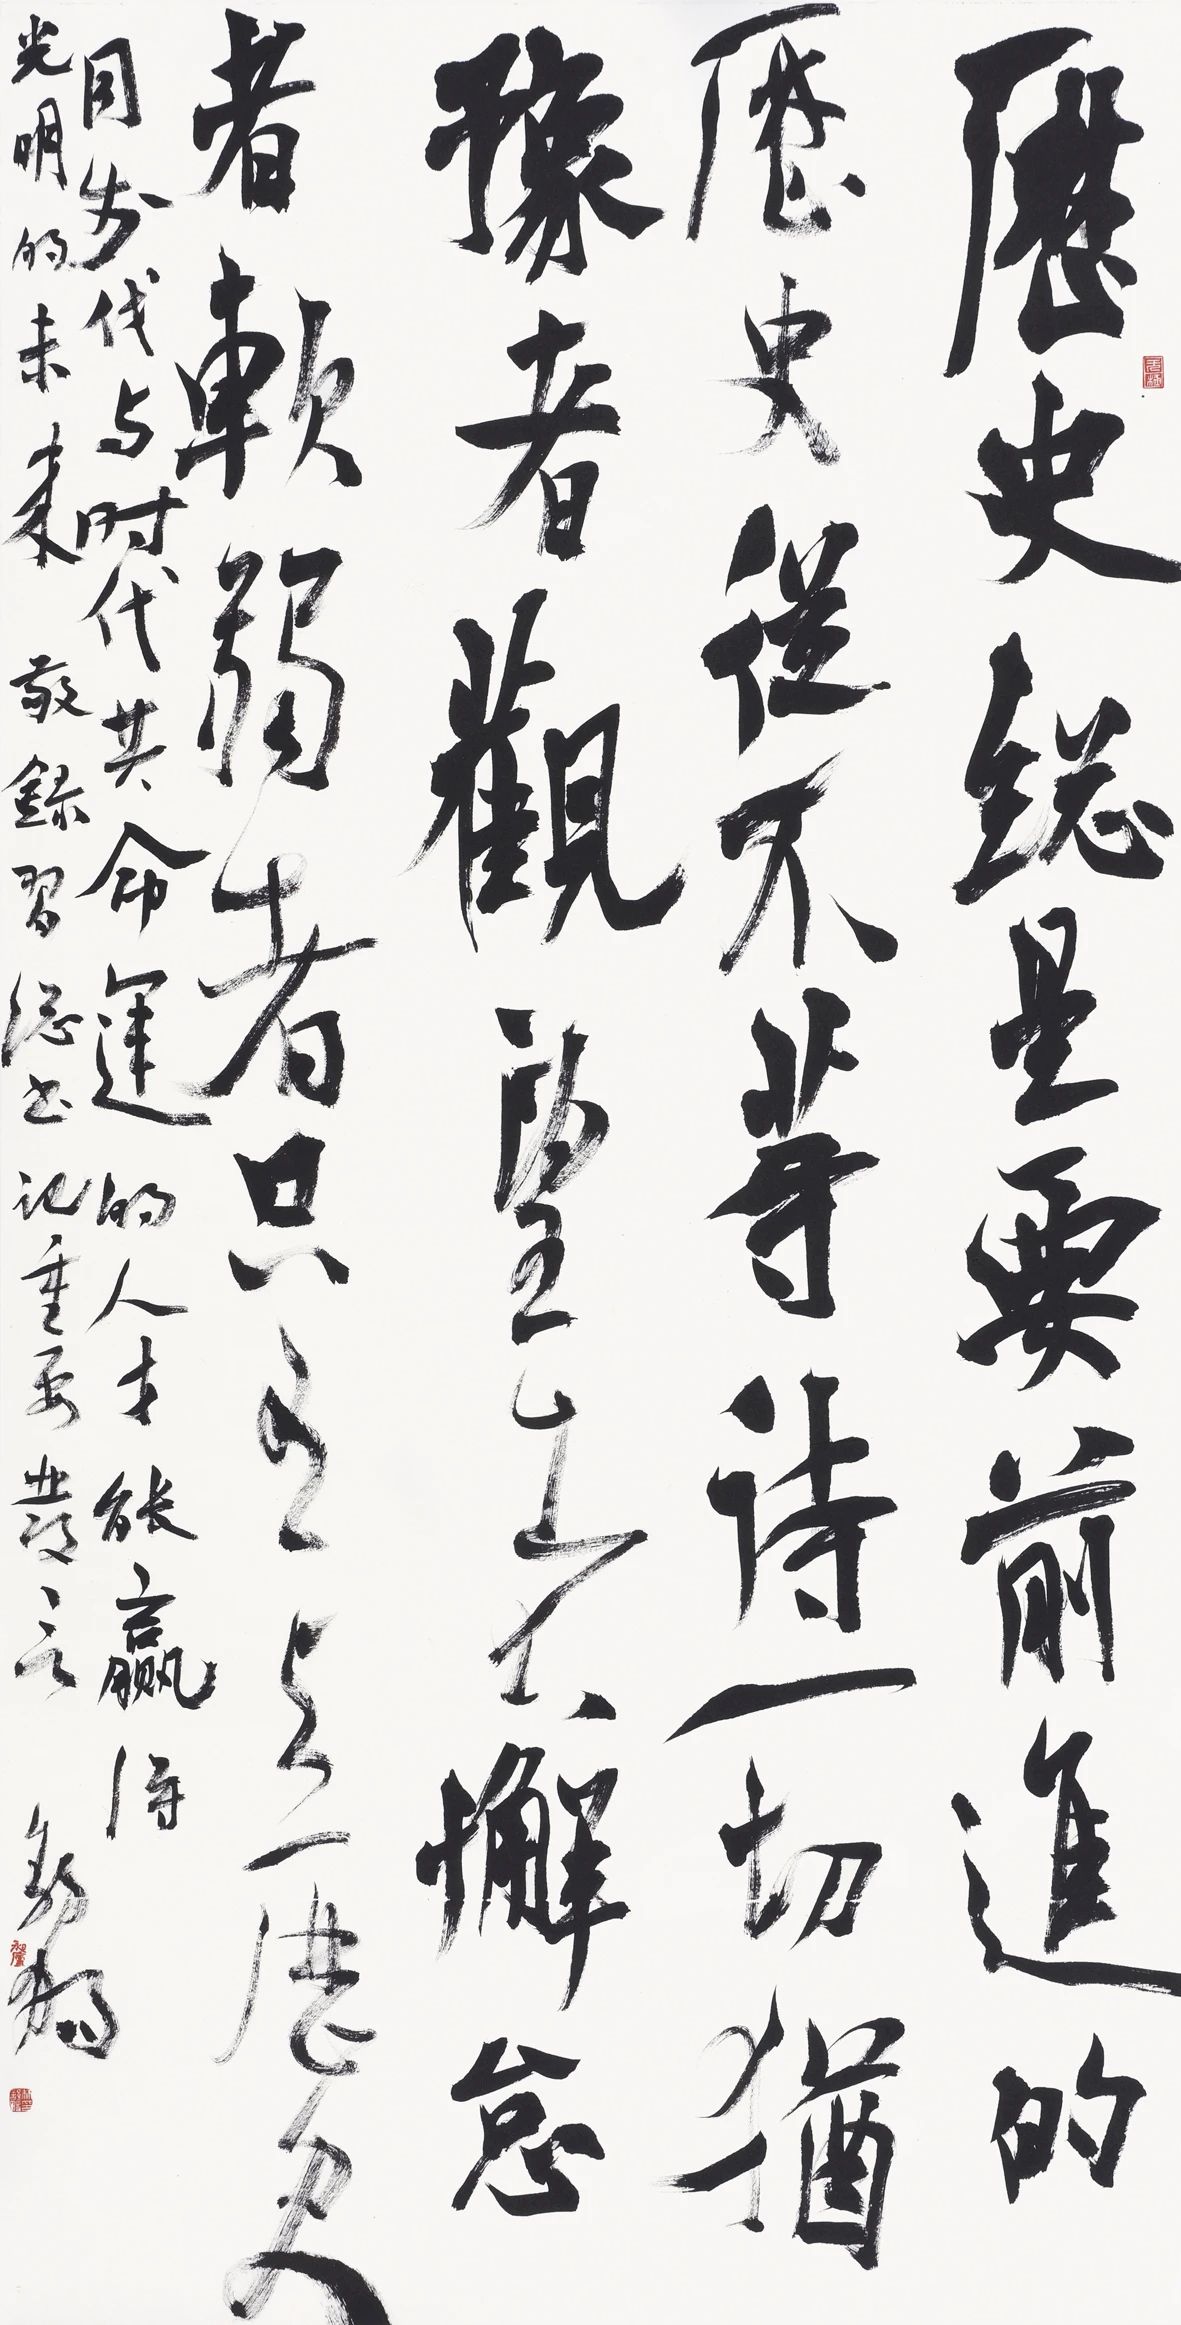 歷史總是要前進的
歷史從不等待一切猶
豫者觀望者懈怠
者軟弱者只有与歷史
同步伐与时代共命運的人才能赢得
光明的未来 敬録習总书记重要發言